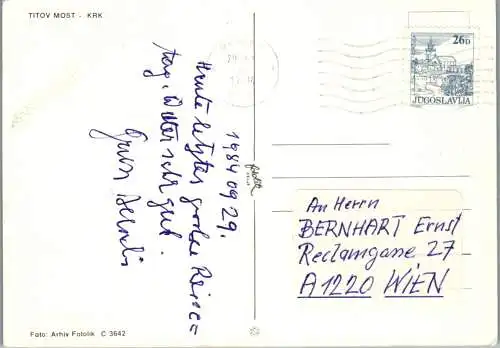 TITOV MOST - KRK
26D
JUGOSLAVIJA
1984 09 29.
Heute letzter großer Reise=
tag. Wetter sehr gut.
Gruß
An Herrn
BERNHART Ernst
Reclamgasse 27
A1220 WIEN
Foto: Arhiv Fotolik C 3642